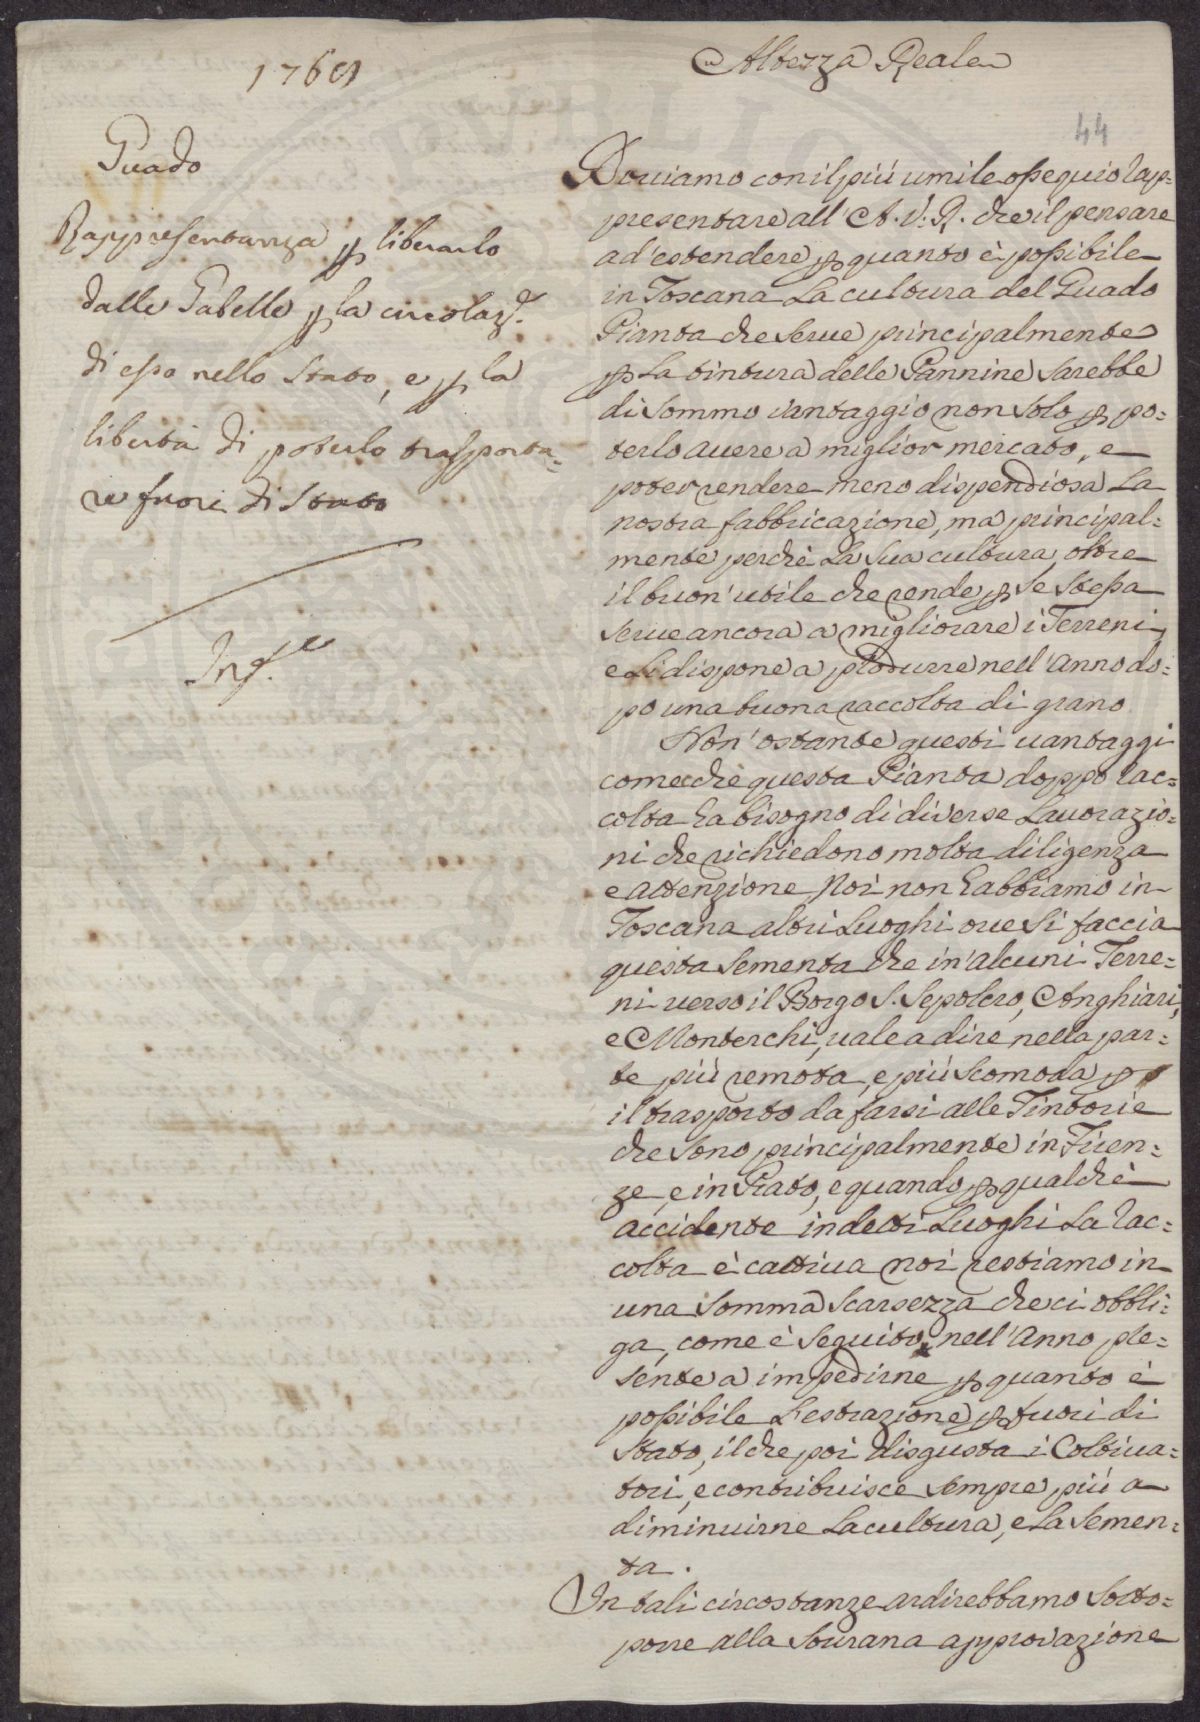 1769
Guado
Rappresentanza p liberarlo
dalle Gabelle p la circolaz.e
di esso nello Stato, e p la
libertà di poterlo trasporta=
re fuori di Stato
Altezza Reale
44
Douiamo con il più umile ossequio rap=
presentare all' A. V. R. che il pensare
ad'estendere p quanto è possibile
in Toscana La cultura del Guado
Pianta che serue principalmente
p La tintura delle Pannine sarebbe
di sommo vantaggio non solo p po=
terlo auere a miglior mercato, e
poter rendere meno dispendiosa La
nostra fabbricazione, ma principal=
mente perchè La sua cultura oltre
il buon'utile che rende p se stessa
serue ancora a migliorare i Terreni,
e Li dispone a produrre nell'Anno do=
po una buona raccolta di grano
Non'ostante questi uantaggi
comecchè questa Pianta doppo rac=
colta ha bisogno di diverse Lauorazio=
ni che richiedono molta diligenza
e attenzione Noi non habbiamo in
Toscana altri Luoghi oue si faccia
questa sementa che in'alcuni Terre=
ni uerso il Borgo S. Sepolcro, Anghiari,
e Monterchi, uale a dire nella par=
te più remota, e più scomoda p
il trasporto da farsi alle Tintorie
che sono principalmente in Firen=
ze, e in Prato, e quando p qualchè
accidente in detti Luoghi La rac=
colta è cattiua noi restiamo in
una somma scarsezza che ci obbli=
ga, come è seguito nell'Anno pre=
sente a impedirne p quanto è
possibile L'estrazione p fuori di
Stato, il che poi disgusta i Coltiua=
tori, e contribuisce sempre più a
diminuirne La cultura, e La semen=
ta.
In tali circostanze ardirebbamo sotto=
porre alla Sourana approvazione